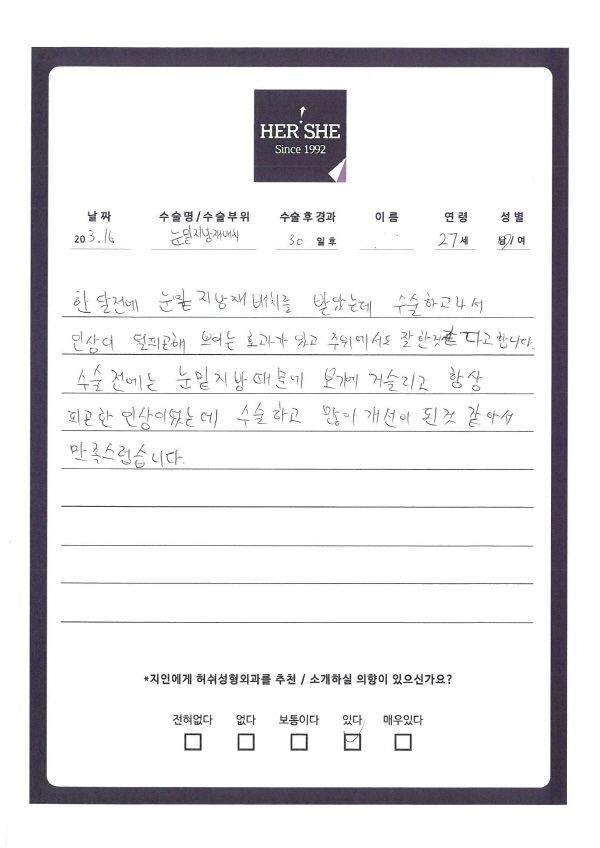 HER SHE
Since 1992
날 짜 수술명/수술부위 수술 후 경과 이 름 연 령 성 별
20 3.16 눈밑지방재배치 30 일 후 27 세 남 / 여
한 달전에 눈밑 지방재배치를 받았는데 수술하고나서
인상이 덜피곤해 보이는 효과가 있고 주위에서도 잘한것같다고 합니다.
수술 전에는 눈밑지방때문에 보기에 거슬리고 항상
피곤한 인상이었는데 수술하고 많이 개선이 된것 같아서
만족스럽습니다.
*지인에게 허쉬성형외과를 추천 / 소개하실 의향이 있으신가요?
전혀없다 없다 보통이다 있다 매우있다